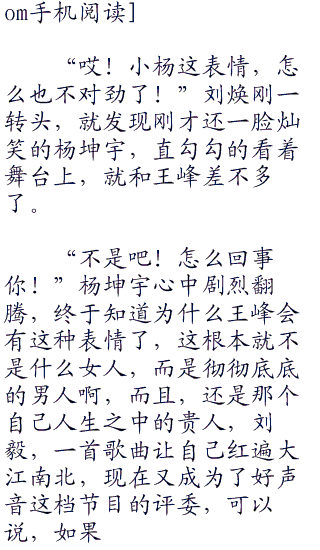 om手机阅读]
“哎！小杨这表情，怎
么也不对劲了！”刘焕刚一
转头，就发现刚才还一脸灿
笑的杨坤宇，直勾勾的看着
舞台上，就和王峰差不多
了。
“不是吧！怎么回事
你！”杨坤宇心中剧烈翻
腾，终于知道为什么王峰会
有这种表情了，这根本就不
是什么女人，而是彻彻底底
的男人啊，而且，还是那个
自己人生之中的贵人，刘
毅，一首歌曲让自己红遍大
江南北，现在又成为了好声
音这档节目的评委，可以
说，如果